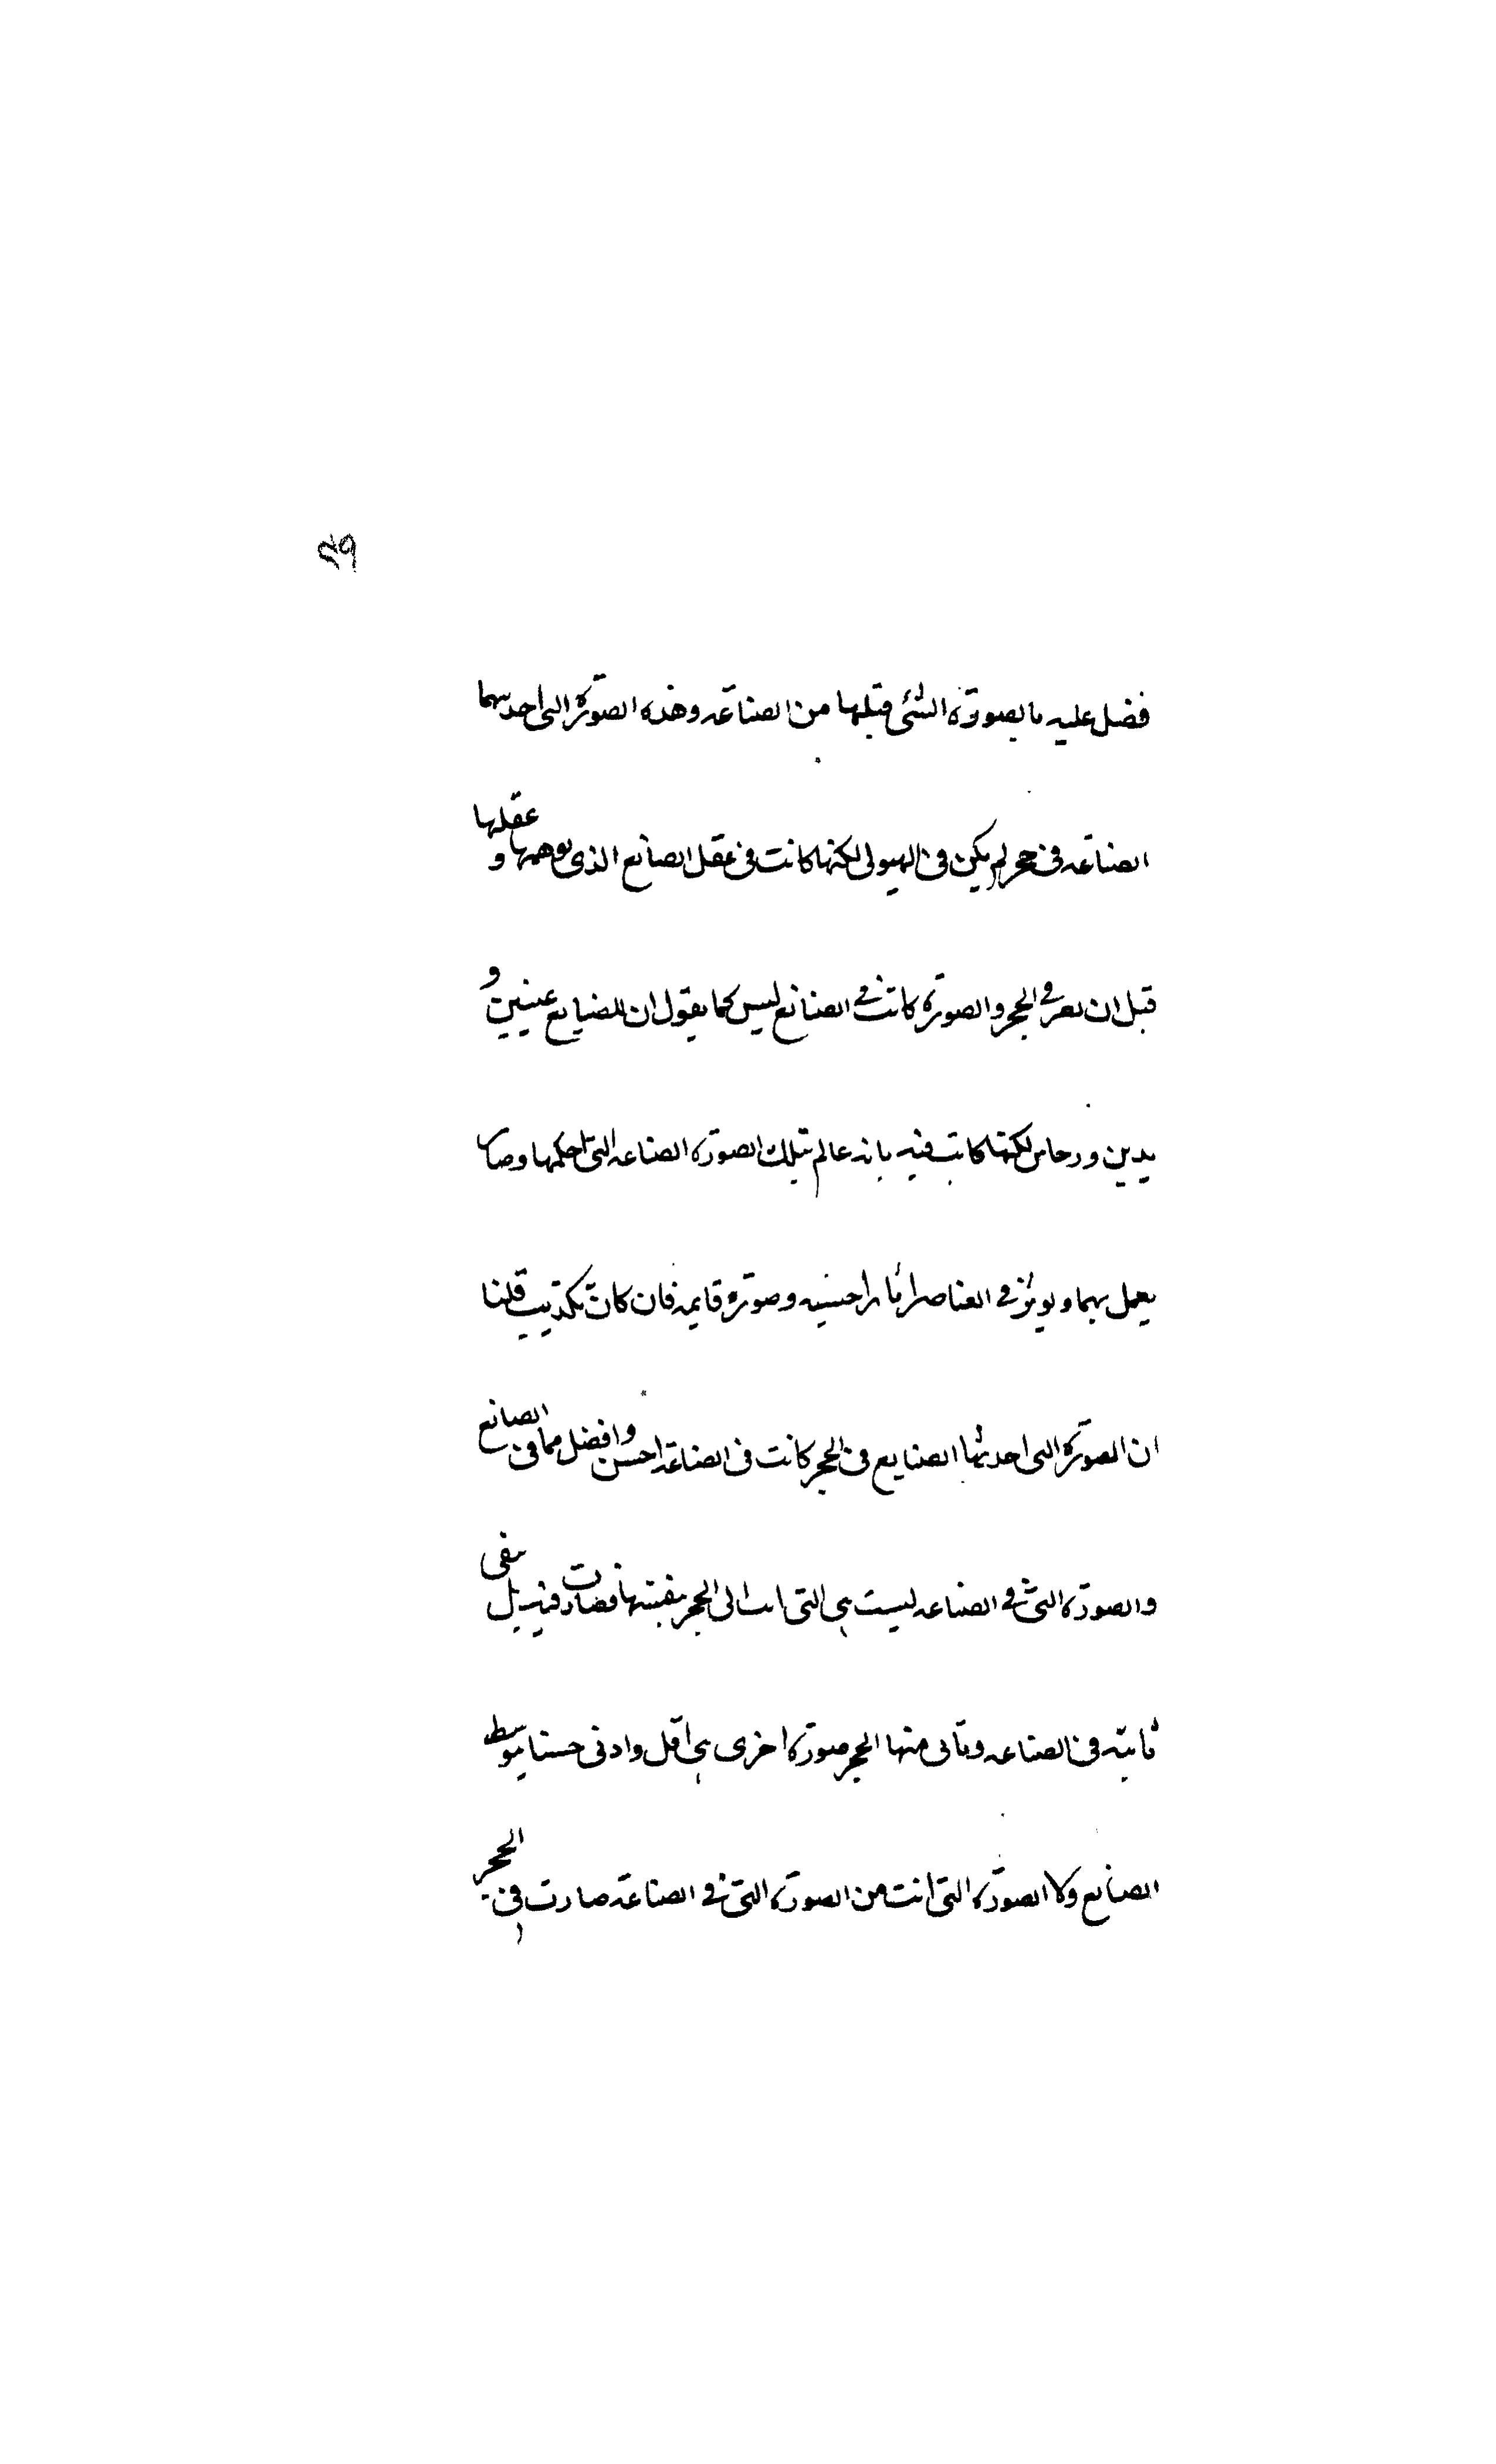 ٤٩
فضل عليه بالصورة التي قبلها من الصناعه وهذه الصورة التي احدثها
الصناعه في حجر لم يكن في الهيولي لكنها كانت في عقل الصانع الذي توهمها و عقلها
قبل ان تصر في الحجر والصورة كانت في الصانع ليس كما يقول ان للصايع عينين و
يدين ورجلين لكنها كانت فيه بانه عالم بتلك الصورة الصناعه التي احكمها وصار
يعمل بها ويوثر في العناصر اثارا حسنه وصورة قايمه فان كان قلنا
ان الصورة التي احدثها الصنايع في الحجر كانت في الصناعة احسن وافضل مما في الصانع
والصورة التي في الصناعه ليست هي التي اتت الى الحجر بنفسها فصارت فيه بل يبقى
ثابته في الصناعه وتاتى منها الحجر صورة اخرى هي اقل وادنى حسنا بتوسط
الصانع ولا الصورة التي انت من الصورة التي في الصناعة صارت في الحجر